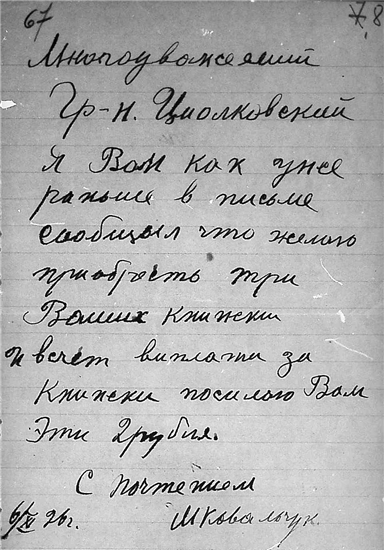 67 7.8
Многоуважаемий
Гр-н. Циолковский
Я Вам как уже
раньше в письме
сообщыл что желаю
приобресть три
Ваших книжки
и всчет виплати за
Книжки посилаю Вам
Эти 2 рубля.
С почтением
6/XI 26г. МКовальчук.